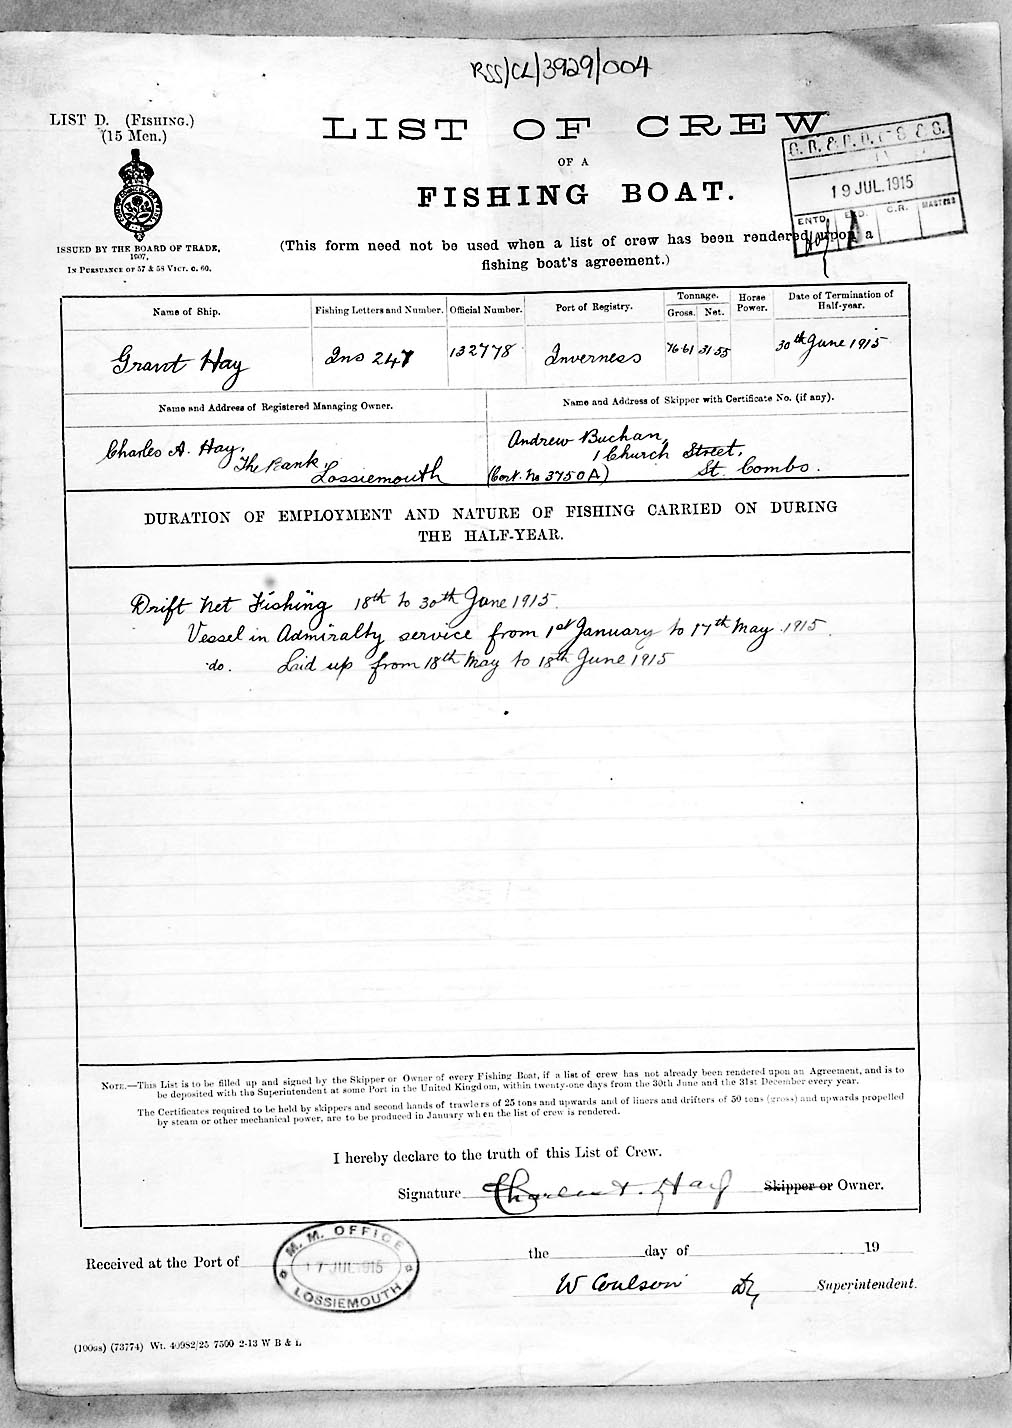 RSS/CL/3929/004
LIST D. (FISHING.)
(15 Men.)
LIST OF CREW
OF A
FISHING BOAT.
19 JUL. 1915
ENTD.
C.R.
MASTERS
ISSUED BY THE BOARD OF TRADE,
1907.
IN PURSUANCE OF 57 & 58 VICT. C. 60.
(This form need not be used when a list of crew has been rendered upon a
fishing boat's agreement.)
Name of Ship. Fishing Letters and Number. Official Number. Port of Registry. Tonnage. Gross. Net. Horse Power. Date of Termination of Half-year.
Grant Hay Ins 247 132778 Inverness 76.61 31.55 30th June 1915
Name and Address of Registered Managing Owner. Name and Address of Skipper with Certificate No. (if any).
Charles A. Hay,
The Bank,
Lossiemouth
Andrew Buchan,
1 Church Street,
(Cert. No 3750A) St. Combs.
DURATION OF EMPLOYMENT AND NATURE OF FISHING CARRIED ON DURING
THE HALF-YEAR.
Drift Net Fishing 18th to 30th June 1915.
Vessel in Admiralty service from 1st January to 17th May 1915.
do. Laid up from 18th May to 18th June 1915
NOTE.—This List is to be filled up and signed by the Skipper or Owner of every Fishing Boat, if a list of crew has not already been rendered upon an Agreement, and is to
be deposited with the Superintendent at some Port in the United Kingdom, within twenty-one days from the 30th June and the 31st December every year.
The Certificates required to be held by skippers and second hands of trawlers of 25 tons and upwards and of liners and drifters of 50 tons (gross) and upwards propelled
by steam or other mechanical power, are to be produced in January when the list of crew is rendered.
I hereby declare to the truth of this List of Crew.
Signature Charles A. Hay Skipper or Owner.
Received at the Port of the day of 19
M. M. OFFICE
17 JUL 1915
LOSSIEMOUTH
W Coulson Dy Superintendent.
(100os) (73774) Wt. 40982/25 7500 2-13 W B & L